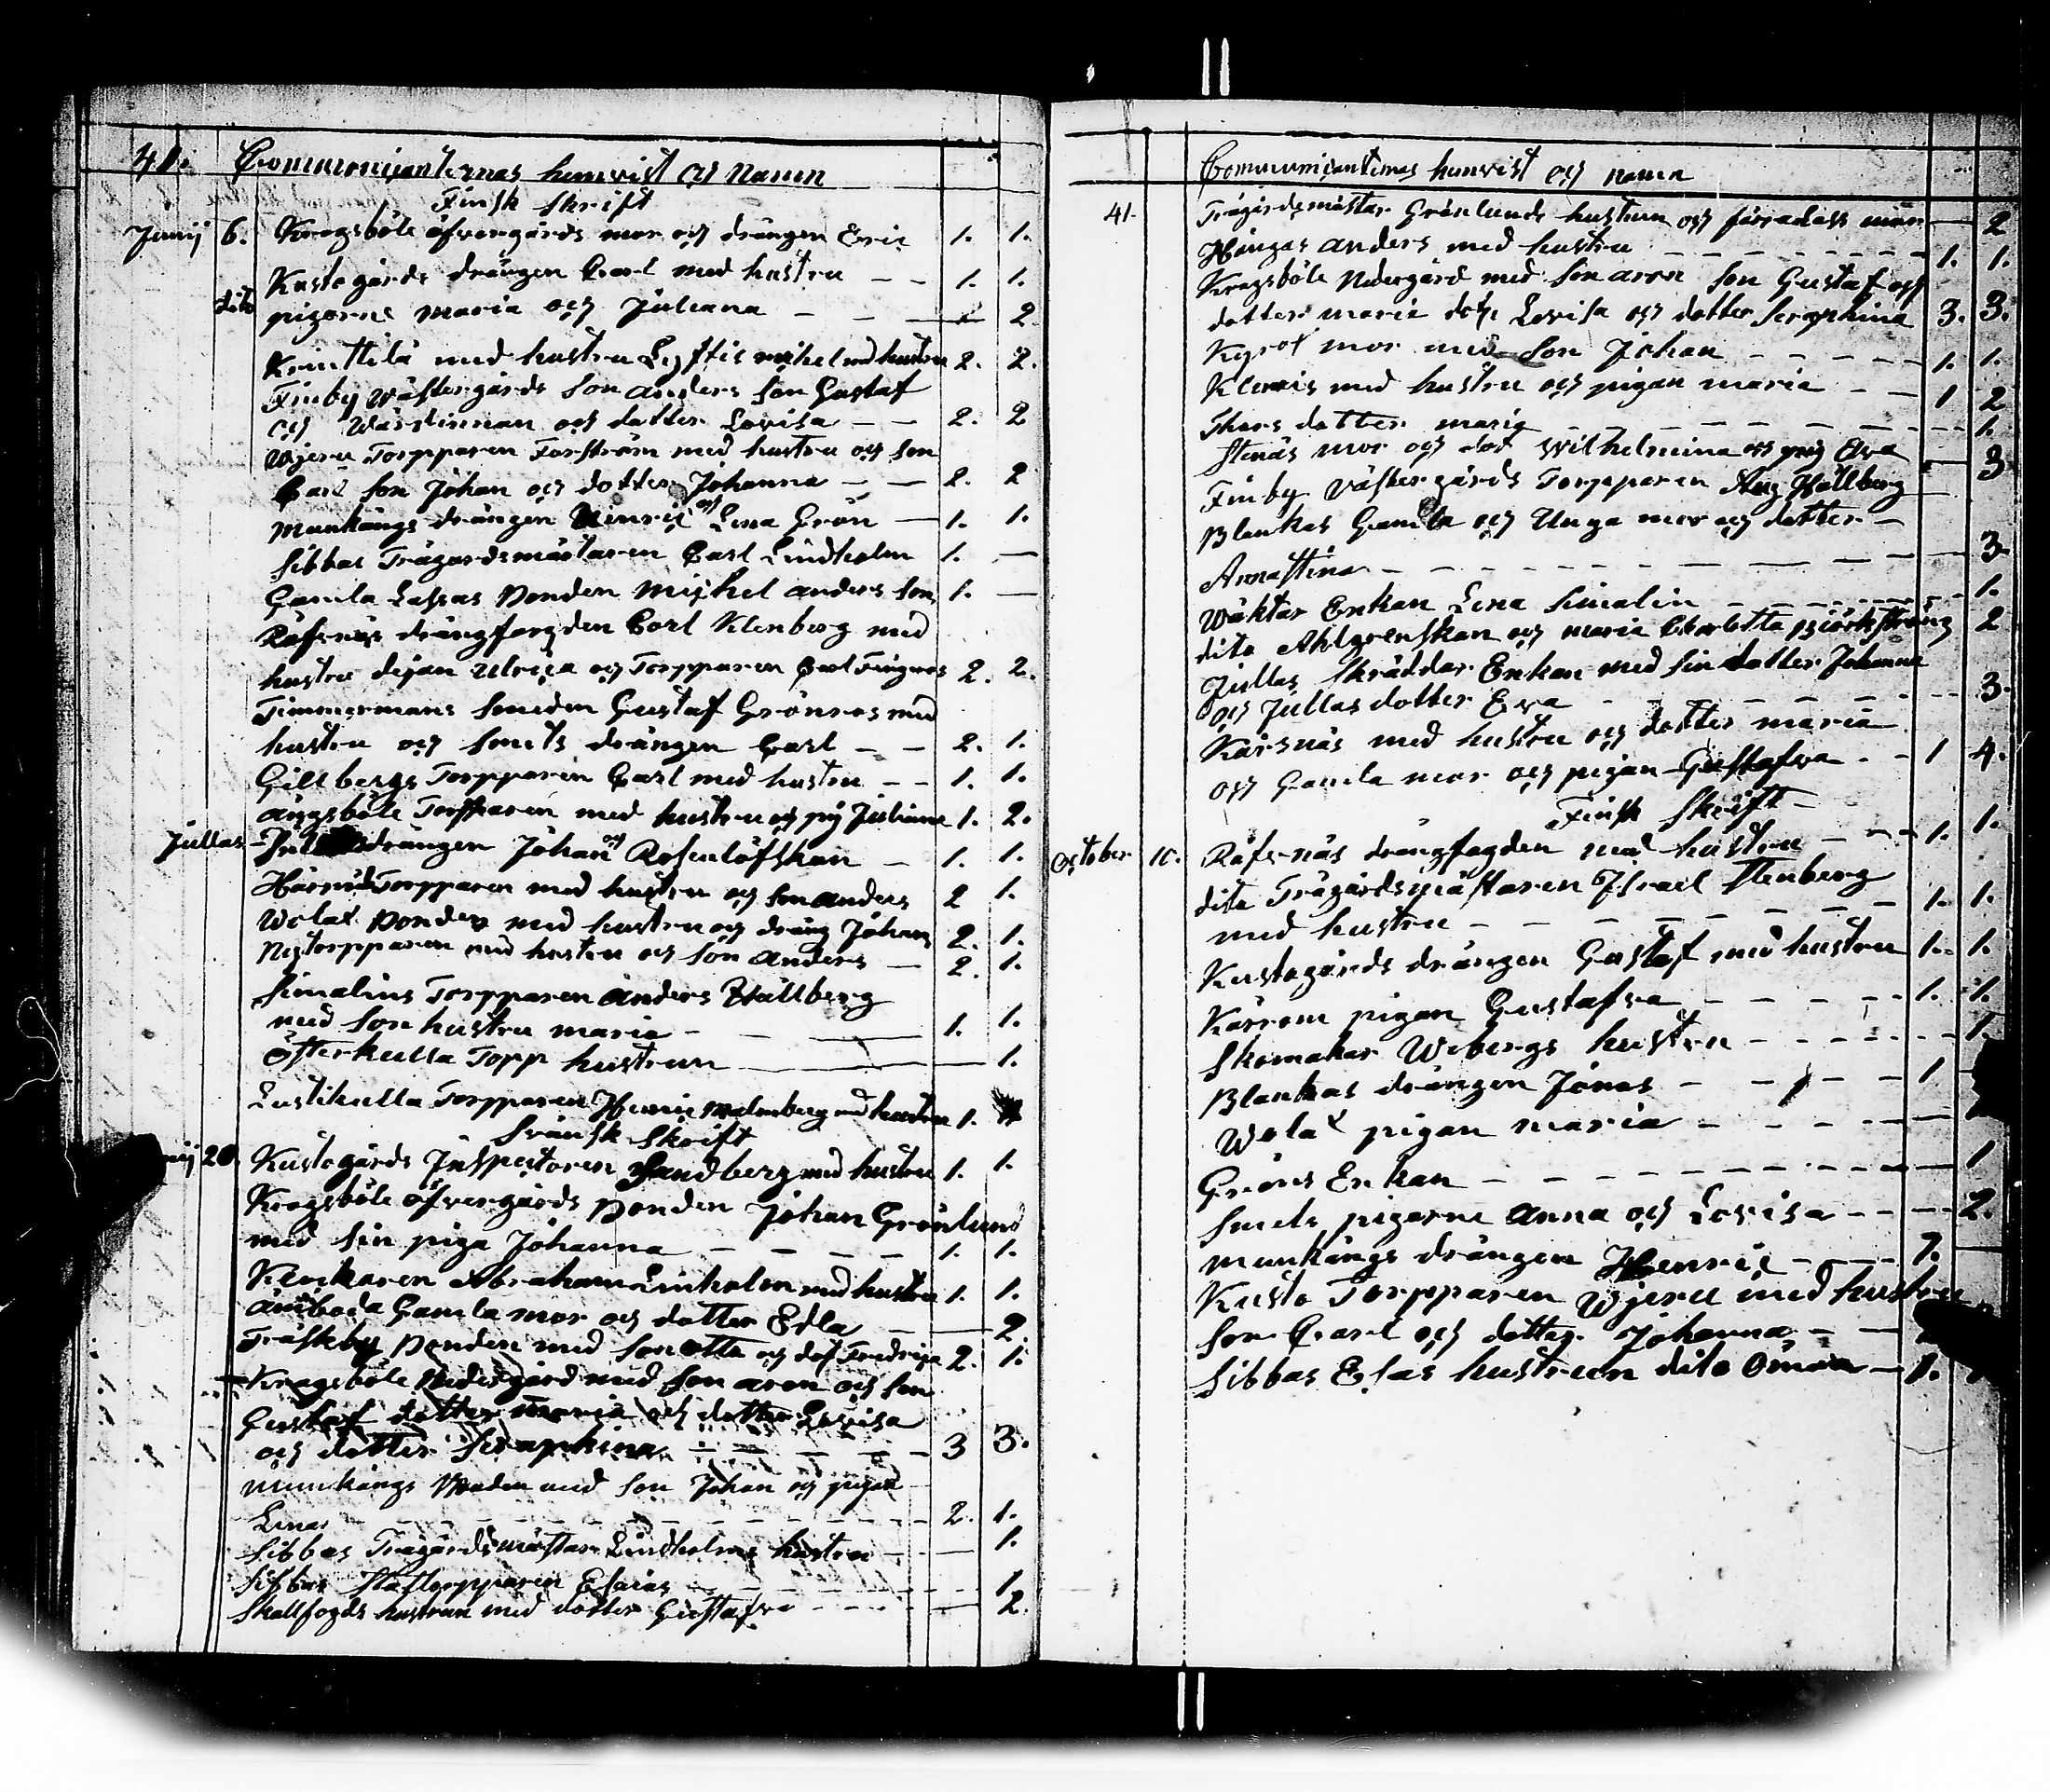 41. Communicanternas hemvist och Namn
Finsk Skrift
Junij 6. Kragsböle öfvergårds mor och drängen Eric 1. 1.
Kustogårds drängen Carl med hustru 1. 1.
dito pigorne maria och Juliana 2
med hustru michel med hustru 2. 2.
Finby Wästergårds Son anders Son Gustaf
och Wärdinnan och dotter Lovisa 2. 2
Wjeru Torpparen Forström med hustru och Son
Carl Son Johan och dotter Johanna 2. 2
munkängs drängen Henric och Lena Grön 1. 1.
Sibbas Trägårdsmästaren Carl Lindholm 1. —
Gamla Lassas Bonden Michel anders Son 1. —
Räfsnäs drängfogden Carl Klenberg med
hustru dejan Ulrica och Torpparen Carl 2. 2.
Timmermans Smeden Gustaf Grönros med
hustru och Smeds drängen Carl 2. 1.
Gillbergs Torpparen Carl med hustru 1. 1.
ängsböle Torpparen med hustru och pig Juliana 1. 2.
Jullas drängen Johan och Rosenlöfskan 1. 1.
Torpparen med hustru och Son anders 2 1.
Wolax Bonden med hustru och dräng Johan 2. 1.
Nytorpparen med hustru och Son anders 2. 1.
Simalins Torpparen anders Hällberg
med Son hustru maria 1. 1.
Österkulla Torpp hustrun 1.
Lustikulla Torpparen Henric Malmberg med hustru 1.
Svänsk Skrift
20. Kustogårds Inspectoren Sandberg med hustru 1. 1.
Kragsböle öfvergårds Bonden Johan Grönlund
med Sin piga Johanna 1. 1.
Abraham Linholm med hustru 1. 1.
Gamla mor och dotter Edla 2.
Träskby Bonden med Son Otto och dot Fredrica 2. 1.
Kragsböle Nedergård med Son aron och Son
Gustaf dotter maria och dotter Lovisa
och dotter Seraphina 3 3.
munkängs Bonden med Son Johan och pigan
Lena 2. 1.
Sibbas Trägårdsmästar Lindholms hustru 1.
Sibbas Esaias 1
Skallfogds hustrun med dotter Gustafva 2.
Communicanternas hemvist och namn
41. Trägårdsmästar Grönlunds hustrun och mor 2
Hängas anders med hustru 1. 1.
Kragsböle Nedergård med Son aron Son Gustaf och
dotter maria Lovisa och dotter Seraphina 3. 3.
mor med Son Johan 1. 1.
Klemis med hustru och pigan maria 1 2
Thors dotter maria 1.
Stenäs mor och dot Wilhelmina och pig Eva 3
Finby Västergårds Torpparen Hällberg
Blankas Gamla och Unga mor och dotter
Annastina 3
Wäktar Enkan Lena Simalin 1.
dito Ahlgrenskan och maria Charlotta 2
Jullas Skräddar Enkan med Sin dotter Johanna
och Jullas dotter Eva 3
Kärsnäs med hustru och dotter maria
och Gamla mor och pigan Gustafva 1 4.
Finsk Skrift
October 10. Räfsnäs drängfogden med hustru 1. 1.
dito Trägårdsmästaren Israel Stenberg
med hustru 1. 1.
Kustogårds drängen Gustaf med hustru 1. 1.
pigan Gustafva 1. 1.
Skomakar Wibergs hustru 1.
Blankas drängen Jonas 1
Wolax pigan maria
Gröns Enkan 1
Smeds pigorne anna och Lovisa 2.
munkängs drängen Henric
Kusto Torpparen Wjeru med hustru
Son Carl och dotter Johanna
Sibbas Esas hustrun dito Öman 1.